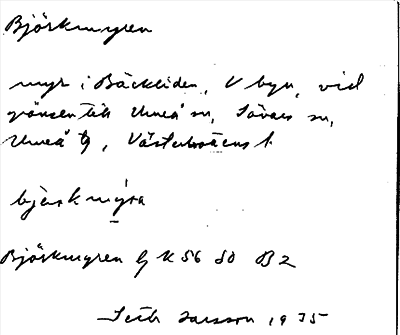 Björkmyren
myr i Bäckliden, V byn, vid
gränsen till Umeå sn, Sävars sn,
Umeå tg, Västerbottens l.
bjärkmyra
Björkmyren lg K 56 S0 B2
Seth Larsson 1935